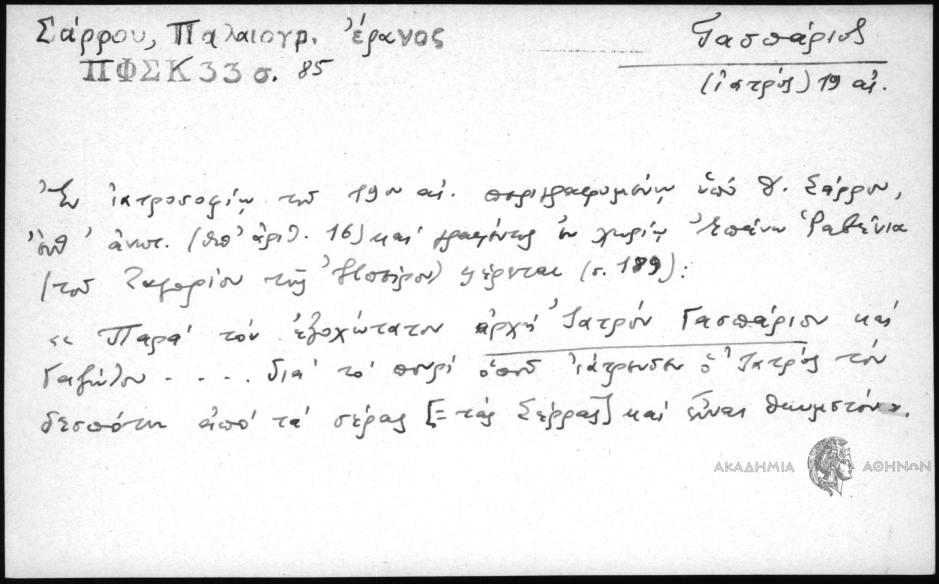 Σάρρου, Παλαιογρ. ἔρανος
ΠΦΣΚ 33 σ. 85
Γασπάριος
(ἰατρός) 19 αἰ.
Ἐν ἰατροσοφίῳ τοῦ 19ου αἰ. περιγραφομένῳ ὑπὸ Δ. Σάρρου,
ἔνθ' ἀνωτ. (ὑπ' ἀριθ. 16) καὶ γραφέντος ἐν χωρίῳ Ἐπάνω Ραβένια
(τοῦ Ζαγορίου τῆς Ἠπείρου) φέρεται (σ. 189):
« Παρὰ τὸν ἐξοχώτατον ἀρχὴ Ἰατρόν Γασπάριον καὶ
.... διὰ τὸ πουρί ὁποῦ ἰάτρευσεν ὁ Ἰατρὸς τὸν
δεσπότη ἀπὸ τὰ σέρας [= τὰς Σέρρας] καὶ εἶναι θαυμστόν».
ΑΚΑΔΗΜΙΑ ΑΘΗΝΩΝ